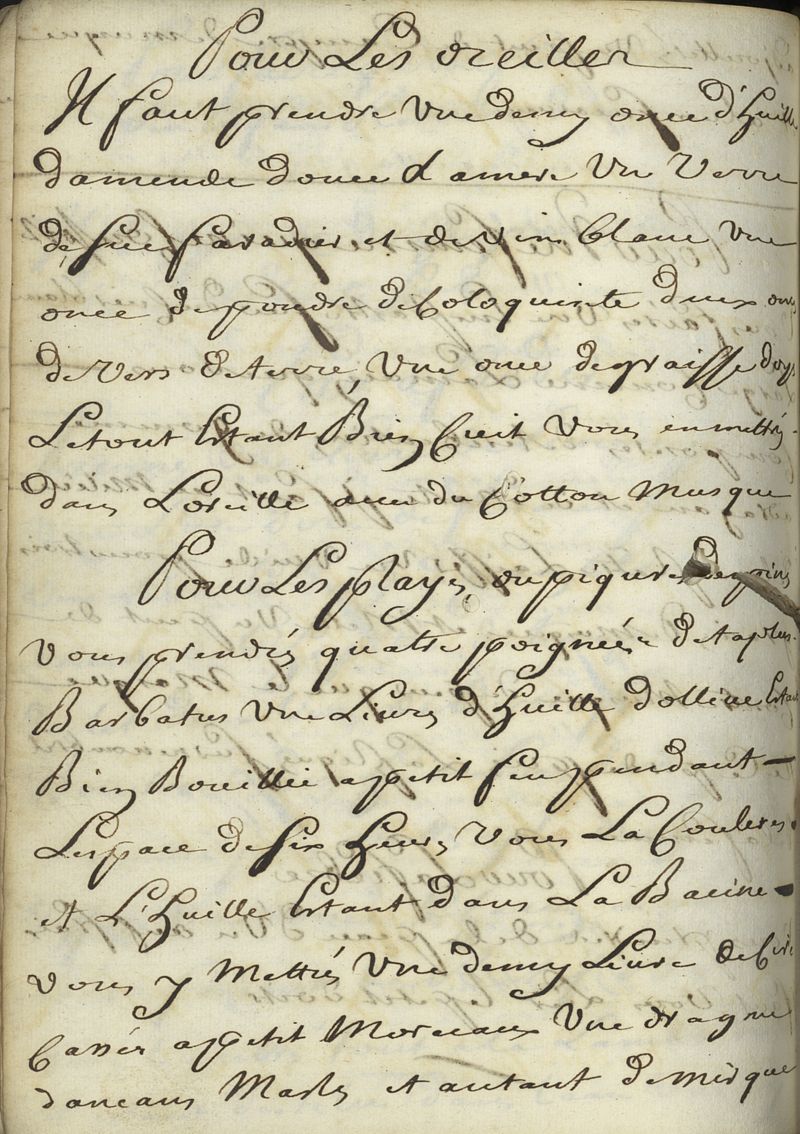 Pour Les oreilles
Il faut prendre une demy once d'huille
damende douce d amere Un Verre
de suc et de vin blanc une
once de poudre de Coloquinte deux
de vers de terre, une once de graisse
Le tout Estant Bien Cuit vous en mettrés
dans L'oreille avec du Cotton Musque
Pour Les playes, ou piqures
vous prendrés quatre poignée de
Barbatus une Livre d'huille dollive Estant
Bien Bouillie a petit feu pendant
Lespace de six heures vous La Coulerés
et L'huille Estant dans La Bacine
vous y Mettrés Une demy Livre de Cire
Cassée a petit Morceaux Une
dancans Masles et autant de